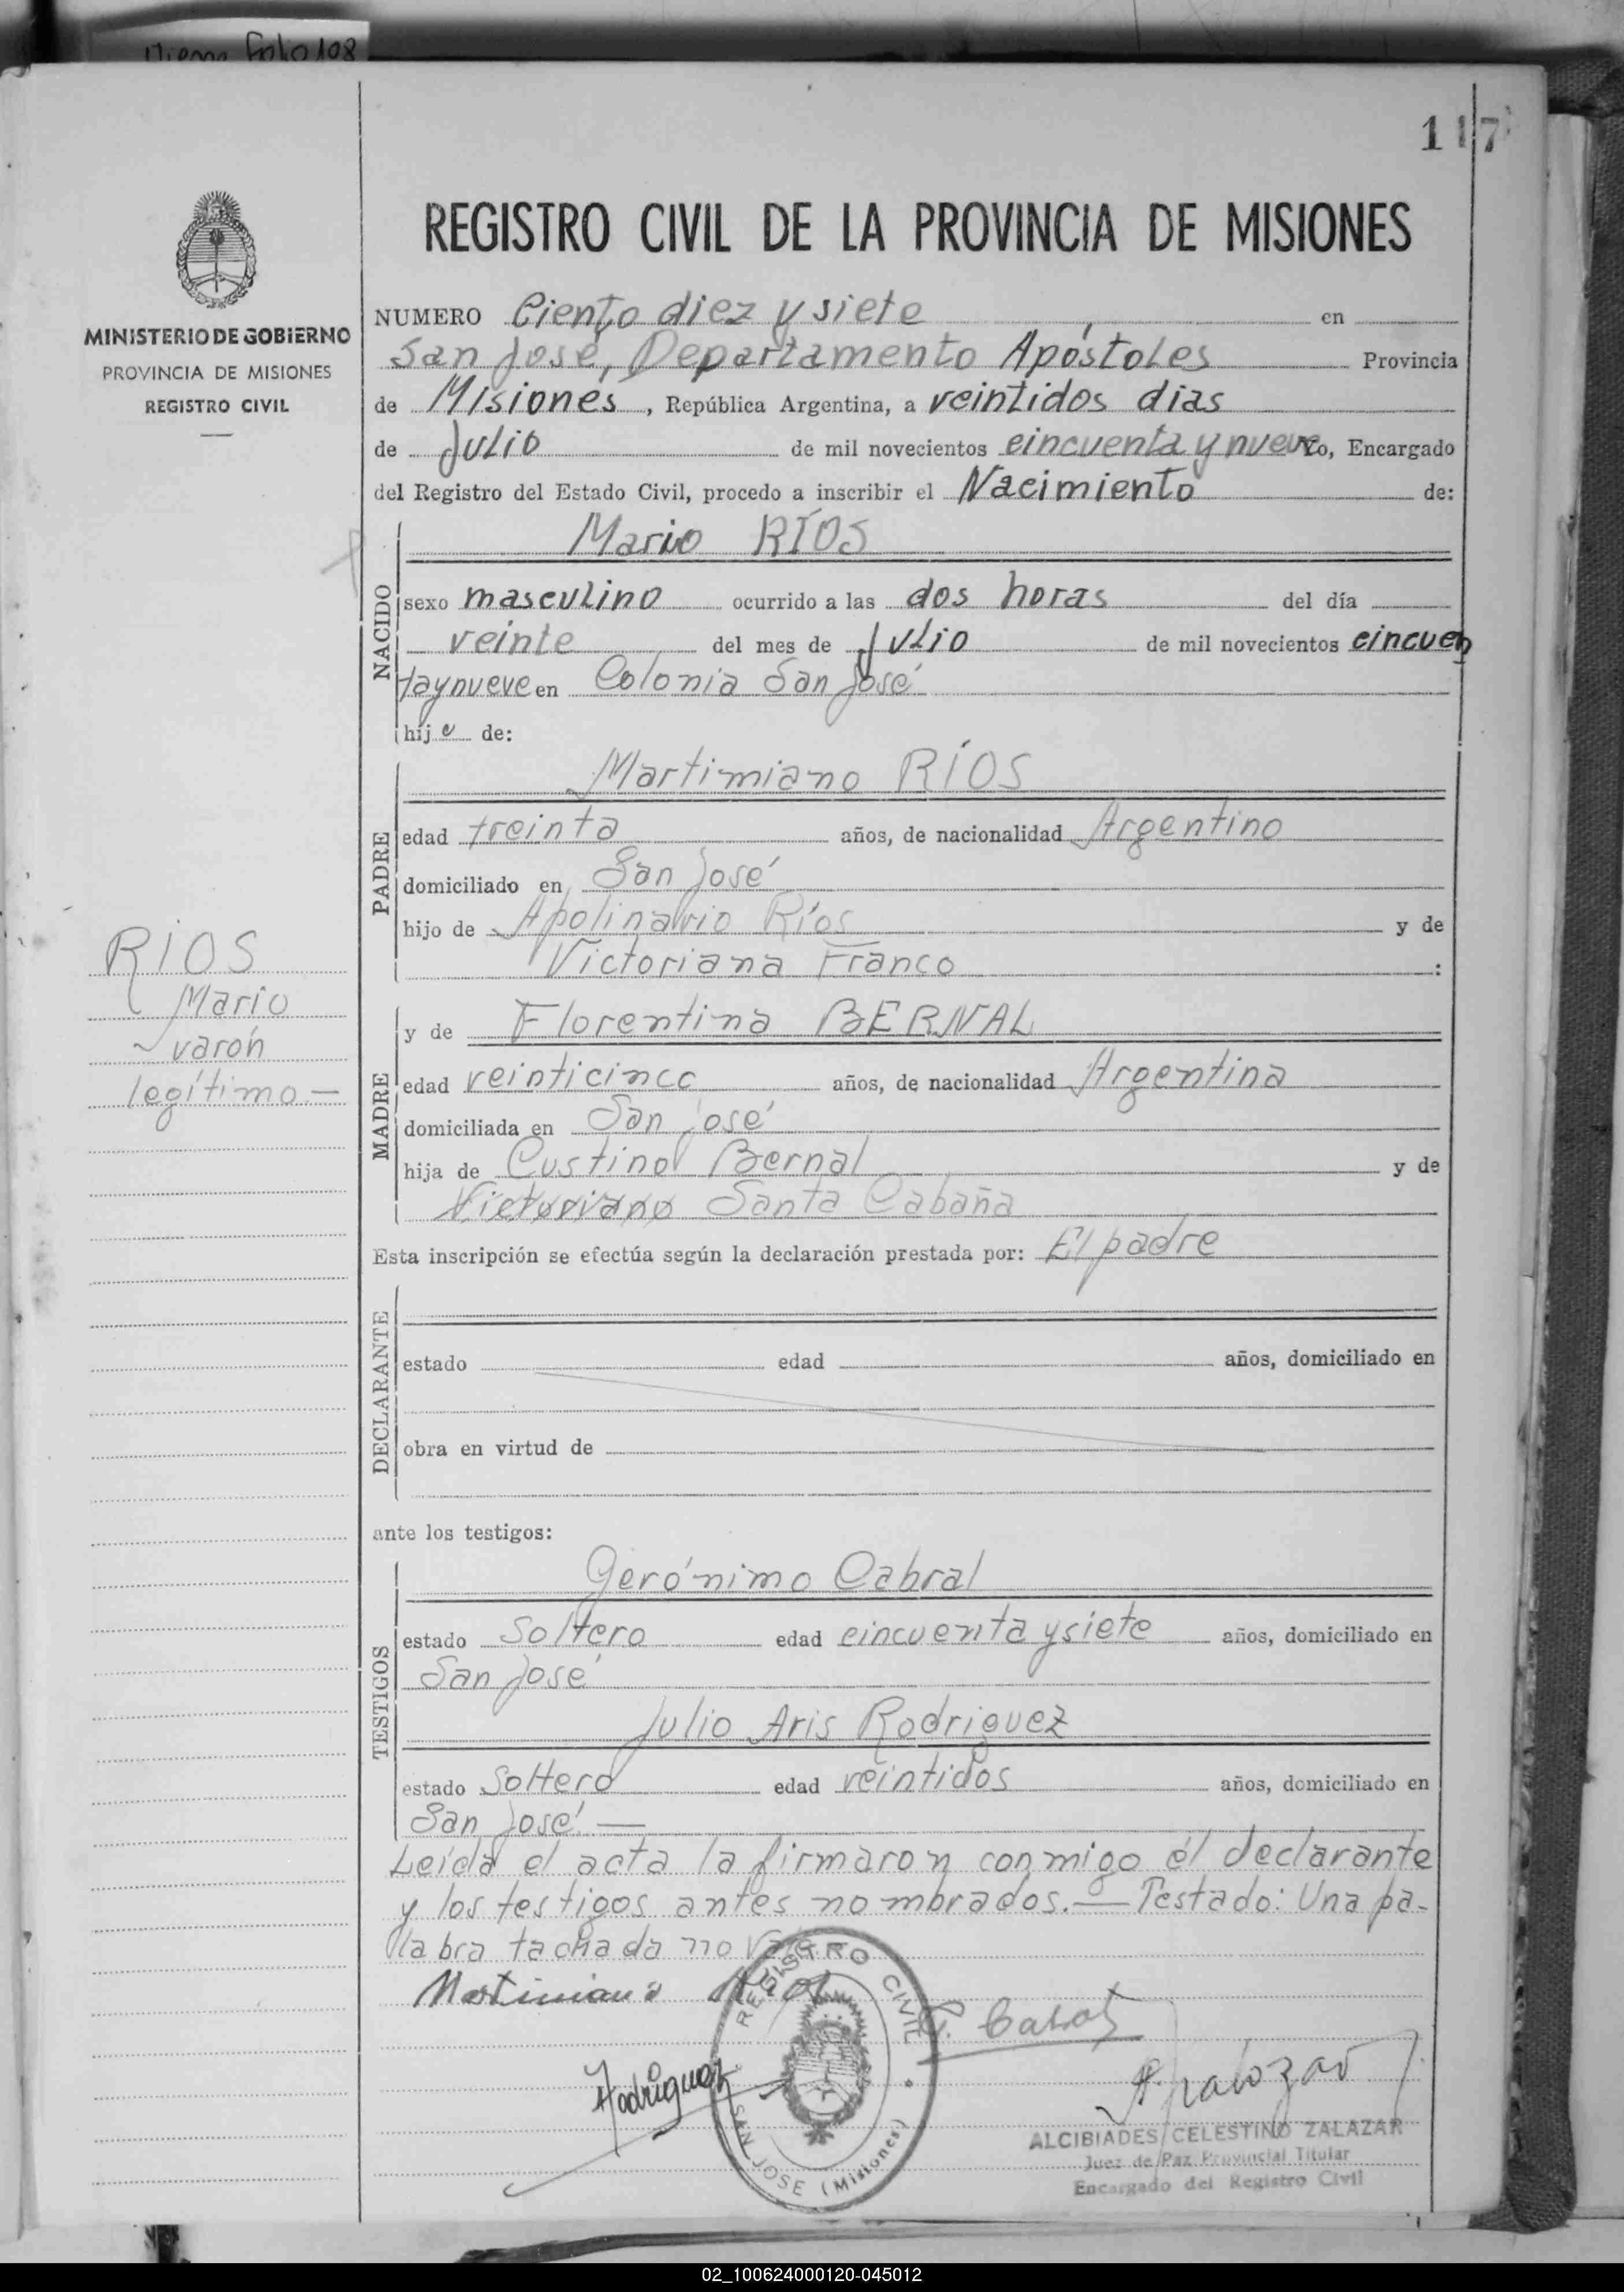 Viene Folio 108
117
MINISTERIO DE GOBIERNO
PROVINCIA DE MISIONES
REGISTRO CIVIL
RIOS
Mario
varón
legítimo.—
REGISTRO CIVIL DE LA PROVINCIA DE MISIONES
NUMERO Ciento diez y siete en
San José, Departamento Apóstoles Provincia
de Misiones, República Argentina, a veintidos dias
de Julio de mil novecientos cincuenta y nueve Yo, Encargado
del Registro del Estado Civil, procedo a inscribir el Nacimiento de:
NACIDO
Mario RÍOS
sexo masculino ocurrido a las dos horas del día
veinte del mes de Julio de mil novecientos cincuen
taynueve en Colonia San José
hijo de:
PADRE
Martimiano RÍOS
edad treinta años, de nacionalidad Argentino
domiciliado en San José
hijo de Apolinario Ríos y de
Victoriana Franco :
MADRE
y de Florentina BERNAL
edad veinticinco años, de nacionalidad Argentina
domiciliada en San José
hija de Custino Bernal y de
Victoriano Santa Cabaña
Esta inscripción se efectúa según la declaración prestada por: El padre
DECLARANTE
estado edad años, domiciliado en
obra en virtud de
ante los testigos:
TESTIGOS
Gerónimo Cabral
estado Soltero edad cincuenta y siete años, domiciliado en
San José
Julio Aris Rodriguez
estado Soltero edad veintidos años, domiciliado en
San José.—
Leída el acta la firmaron conmigo él declarante
y los testigos antes nombrados.— Testado: Una pa-
labra tachada no vale
Martimiano Rios
G. Cabral
Rodriguez
REGISTRO CIVIL
SAN JOSE (Misiones)
ALCIBIADES CELESTINO ZALAZAR
Juez de Paz Provincial Titular
Encargado del Registro Civil
02_100624000120-045012